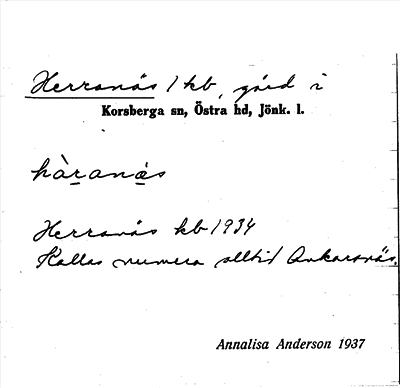 Herranäs 1 kb, gård i
Korsberga sn, Östra hd, Jönk. l.
hàranäs
Herranäs kb 1934
Kallas numera alltid Ankarsnäs.
Annalisa Anderson 1937